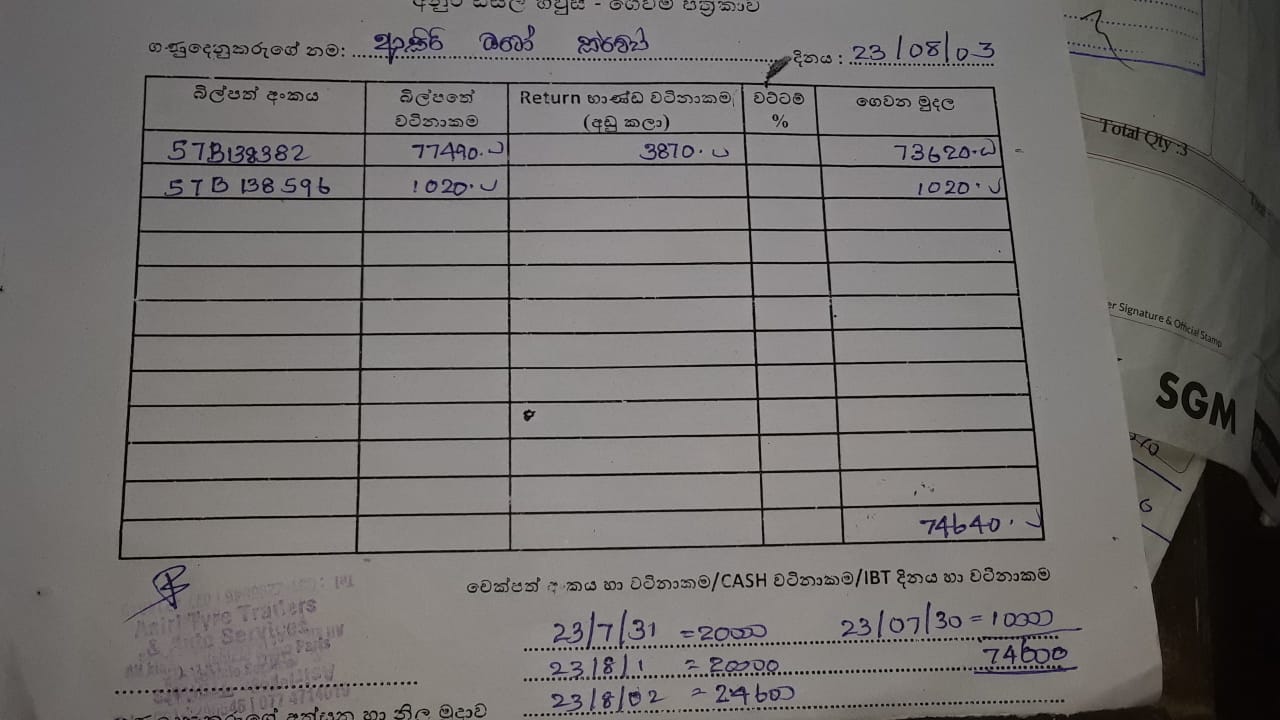 ගණුදෙනුකරුගේ නම: දිනය : 23/08/03
බිල්පත් අංකය බිල්පතේ වටිනාකම Return භාණ්ඩ වටිනාකම (අඩු කලා) වට්ටම % ගෙවන මුදල
57B138382 77490.- 3870.- 73620.-
57B 138596 1020.- 1020.-
74640.-
චෙක්පත් අංකය හා වටිනාකම/CASH වටිනාකම/IBT දිනය හා වටිනාකම
23/7/31 =20000 23/07/30 = 10000
23/8/1 = 20000 74600
23/8/02 = 24600
Asiri Tyre Traders
& Auto Services
Total Qty :3
Signature & Official Stamp
SGM